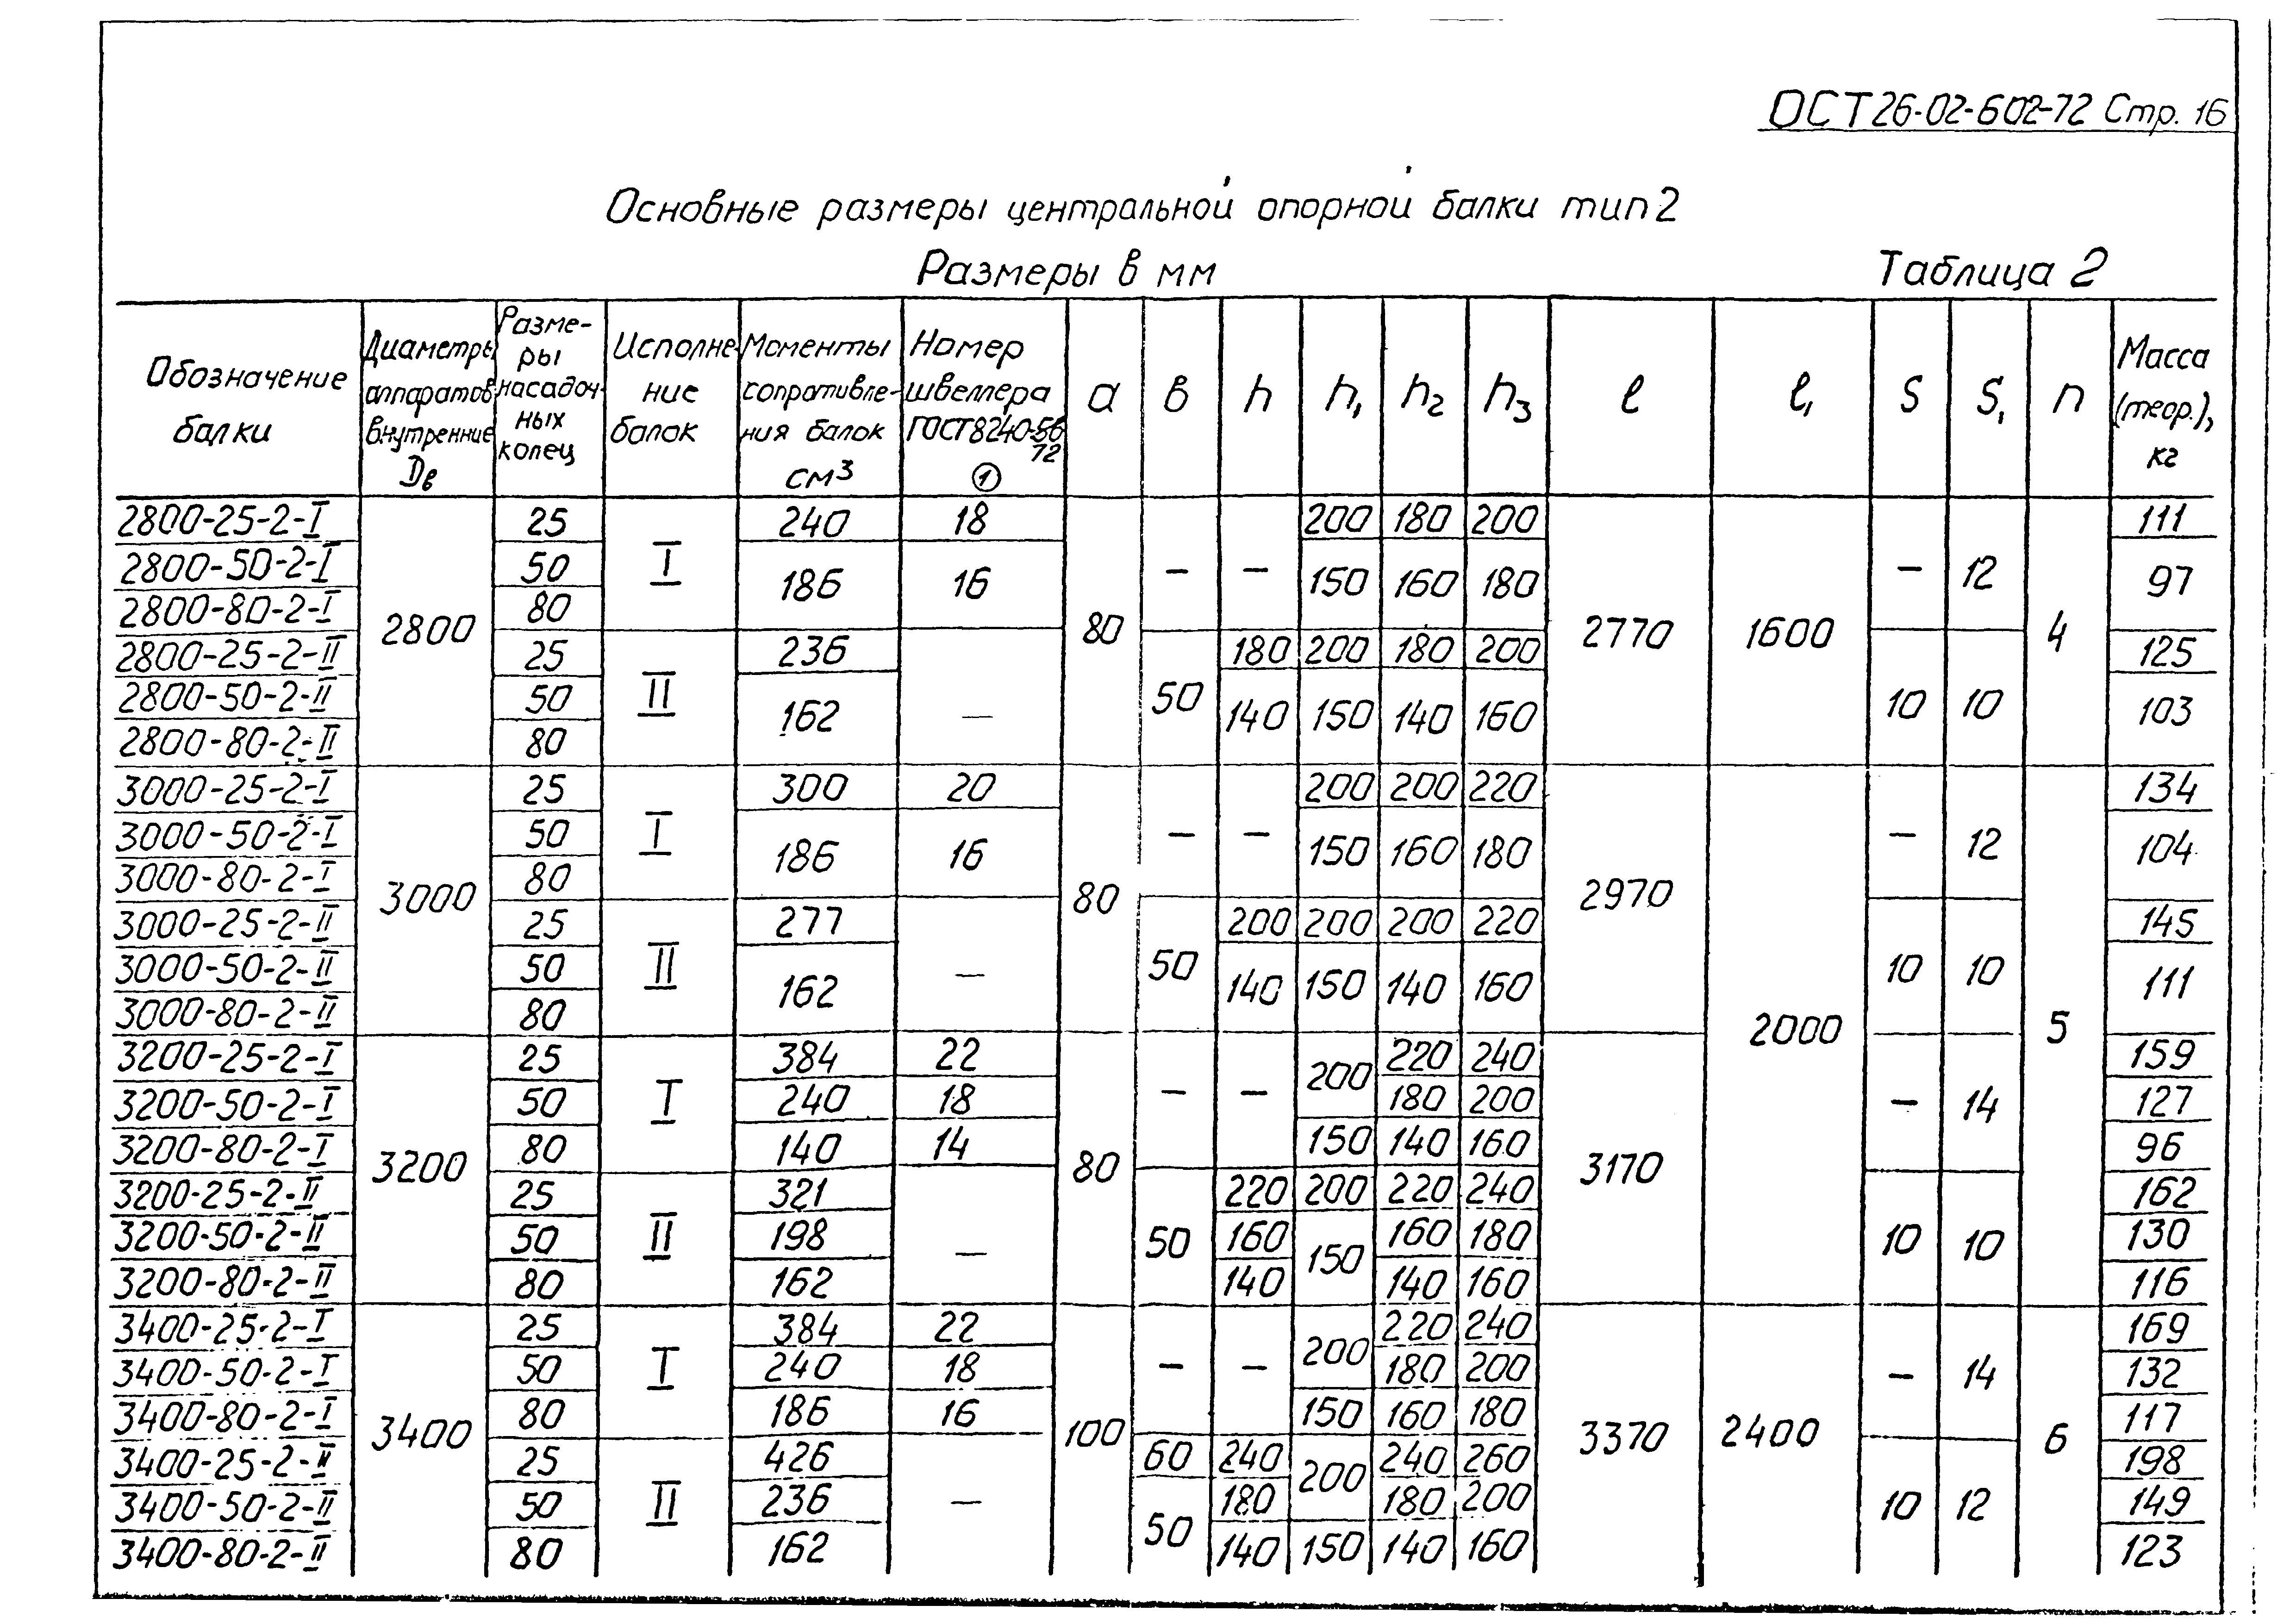 ОСТ 26-02-602-72 Стр. 16
Основные размеры центральной опорной балки тип 2
Размеры в мм Таблица 2
Обозначение балки | Диаметры аппаратов внутренние Dв | Размеры насадочных колец | Исполнение балок | Моменты сопротивления балок см³ | Номер швеллера ГОСТ 8240-56 72 ① | a | в | h | h₁ | h₂ | h₃ | ℓ | ℓ₁ | S | S₁ | n | Масса (теор.), кг
2800-25-2-I | 2800 | 25 | I | 240 | 18 | 80 | – | – | 200 | 180 | 200 | 2770 | 1600 | – | 12 | 4 | 111
2800-50-2-I | 50 | 186 | 16 | 150 | 160 | 180 | 97
2800-80-2-I | 80
2800-25-2-II | 25 | II | 236 | – | 50 | 180 | 200 | 180 | 200 | 10 | 10 | 125
2800-50-2-II | 50 | 162 | 140 | 150 | 140 | 160 | 103
2800-80-2-II | 80
3000-25-2-I | 3000 | 25 | I | 300 | 20 | 80 | – | – | 200 | 200 | 220 | 2970 | 2000 | – | 12 | 5 | 134
3000-50-2-I | 50 | 186 | 16 | 150 | 160 | 180 | 104
3000-80-2-I | 80
3000-25-2-II | 25 | II | 277 | – | 50 | 200 | 200 | 200 | 220 | 10 | 10 | 145
3000-50-2-II | 50 | 162 | 140 | 150 | 140 | 160 | 111
3000-80-2-II | 80
3200-25-2-I | 3200 | 25 | I | 384 | 22 | 80 | – | – | 200 | 220 | 240 | 3170 | – | 14 | 159
3200-50-2-I | 50 | 240 | 18 | 180 | 200 | 127
3200-80-2-I | 80 | 140 | 14 | 150 | 140 | 160 | 96
3200-25-2-II | 25 | II | 321 | – | 50 | 220 | 200 | 220 | 240 | 10 | 10 | 162
3200-50-2-II | 50 | 198 | 160 | 150 | 160 | 180 | 130
3200-80-2-II | 80 | 162 | 140 | 140 | 160 | 116
3400-25-2-I | 3400 | 25 | I | 384 | 22 | 100 | – | – | 200 | 220 | 240 | 3370 | 2400 | – | 14 | 6 | 169
3400-50-2-I | 50 | 240 | 18 | 180 | 200 | 132
3400-80-2-I | 80 | 186 | 16 | 150 | 160 | 180 | 117
3400-25-2-II | 25 | II | 426 | – | 60 | 240 | 200 | 240 | 260 | 10 | 12 | 198
3400-50-2-II | 50 | 236 | 50 | 180 | 180 | 200 | 149
3400-80-2-II | 80 | 162 | 140 | 150 | 140 | 160 | 123